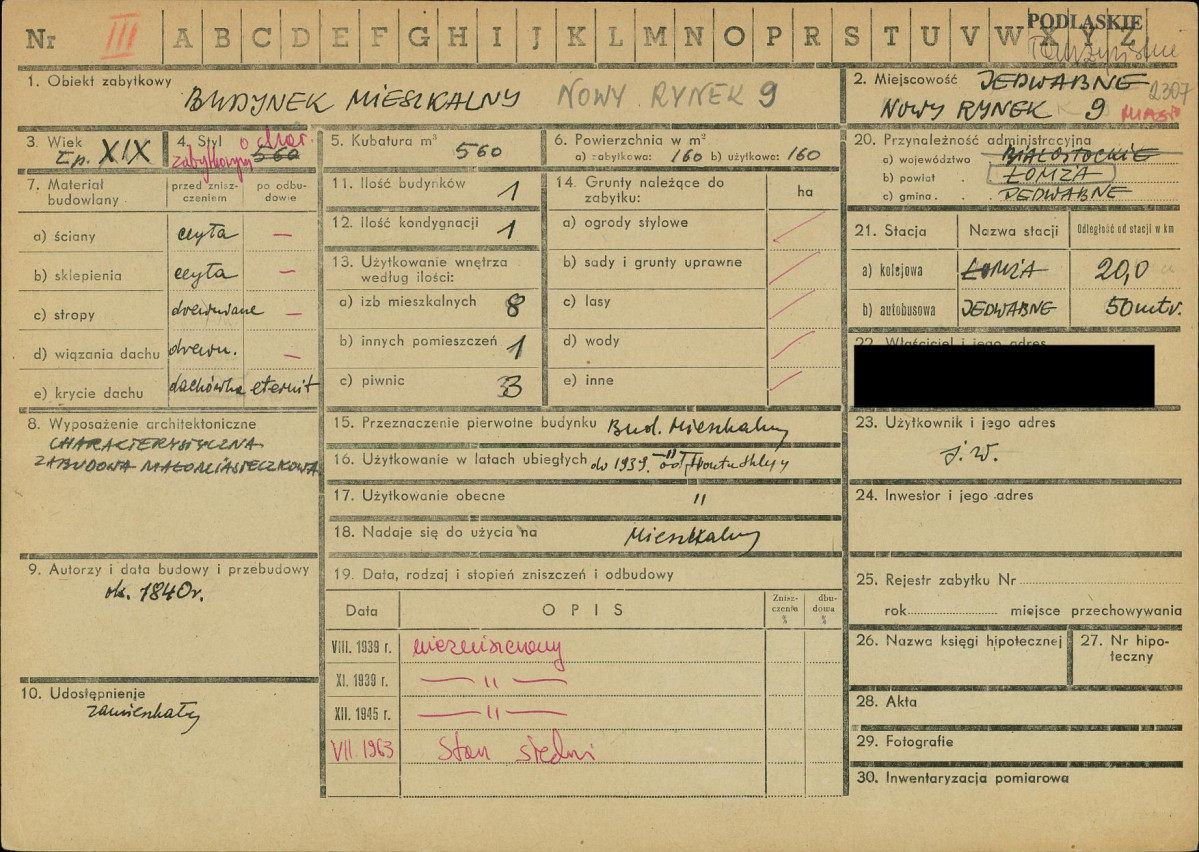 Nr III A B C D E F G H I J K L M N O P R S T U V W X Y Z
PODLASKIE
1. Obiekt zabytkowy
BUDYNEK MIESZKALNY NOWY RYNEK 9
2. Miejscowość JEDWABNE 2307
NOWY RYNEK 9
3. Wiek
I p. XIX
4. Styl o char.
zabytkowym 560
5. Kubatura m³ 560
6. Powierzchnia w m²
a) zabytkowa: 160 b) użytkowa: 160
7. Materiał budowlany
przed zniszczeniem
po odbudowie
a) ściany cegła —
b) sklepienia cegła —
c) stropy drewniane —
d) wiązania dachu drewn. —
e) krycie dachu dachówka eternit
8. Wyposażenie architektoniczne
CHARAKTERYSTYCZNA
ZABUDOWA MAŁOMIASTECZKOWA
9. Autorzy i data budowy i przebudowy
ok. 1840 r.
10. Udostępnienie
zamieszkały
11. Ilość budynków 1
12. Ilość kondygnacji 1
13. Użytkowanie wnętrza
według ilości:
a) izb mieszkalnych 8
b) innych pomieszczeń 1
c) piwnic 3
14. Grunty należące do
zabytku:
ha
a) ogrody stylowe
b) sady i grunty uprawne
c) lasy
d) wody
e) inne
15. Przeznaczenie pierwotne budynku Bud. Mieszkalny
16. Użytkowanie w latach ubiegłych do 1939. " od
17. Użytkowanie obecne "
18. Nadaje się do użycia na Mieszkalny
19. Data, rodzaj i stopień zniszczeń i odbudowy
Data
OPIS
Zniszczenie %
dbudowa %
VIII. 1939 r. niezniszczony
XI. 1939 r. — " —
XII. 1945 r. — " —
VII. 1963 Stan średni
20. Przynależność administracyjna
a) województwo BIAŁOSTOCKIE
b) powiat ŁOMŻA
c) gmina JEDWABNE
21. Stacja Nazwa stacji Odległość od stacji w km
a) kolejowa ŁOMŻA 20,0
b) autobusowa JEDWABNE 50 mtr.
22. Właściciel i jego adres
23. Użytkownik i jego adres
j. w.
24. Inwestor i jego adres
25. Rejestr zabytku Nr
rok miejsce przechowywania
26. Nazwa księgi hipotecznej
27. Nr hipoteczny
28. Akta
29. Fotografie
30. Inwentaryzacja pomiarowa